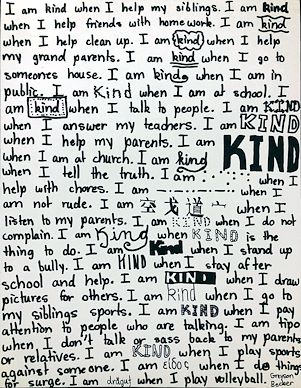 I am kind when I help my siblings. I am kind
when I help friends with homework. I am kind
when I help clean up. I am kind when I help
my grand parents. I am kind when I go to
someones house. I am kind when I am in
public. I am Kind when I am at school. I
am kind when I talk to people. I am KIND
when I answer my teachers. I am KIND
when I help my parents. I am KIND
when I am at church. I am king
when I tell the truth. I am
help with chores. I am when I
am not rude. I am when I
listen to my parents. I am KIND when I do not
complain. I am King when KIND is the
thing to do. I am Kind when I stand up
to a bully. I am KIND when I stay after
school and help. I am KIND when I draw
pictures for others. I am kind when I go to
my siblings sports. I am KIND when I pay
attention to people who are talking. I am tipo
when I don't talk or sass back to my parents
or relatives. I am KIND when I play sports
against someone. I am when I do things
for surge. I am when I play volleyball.
Greyson